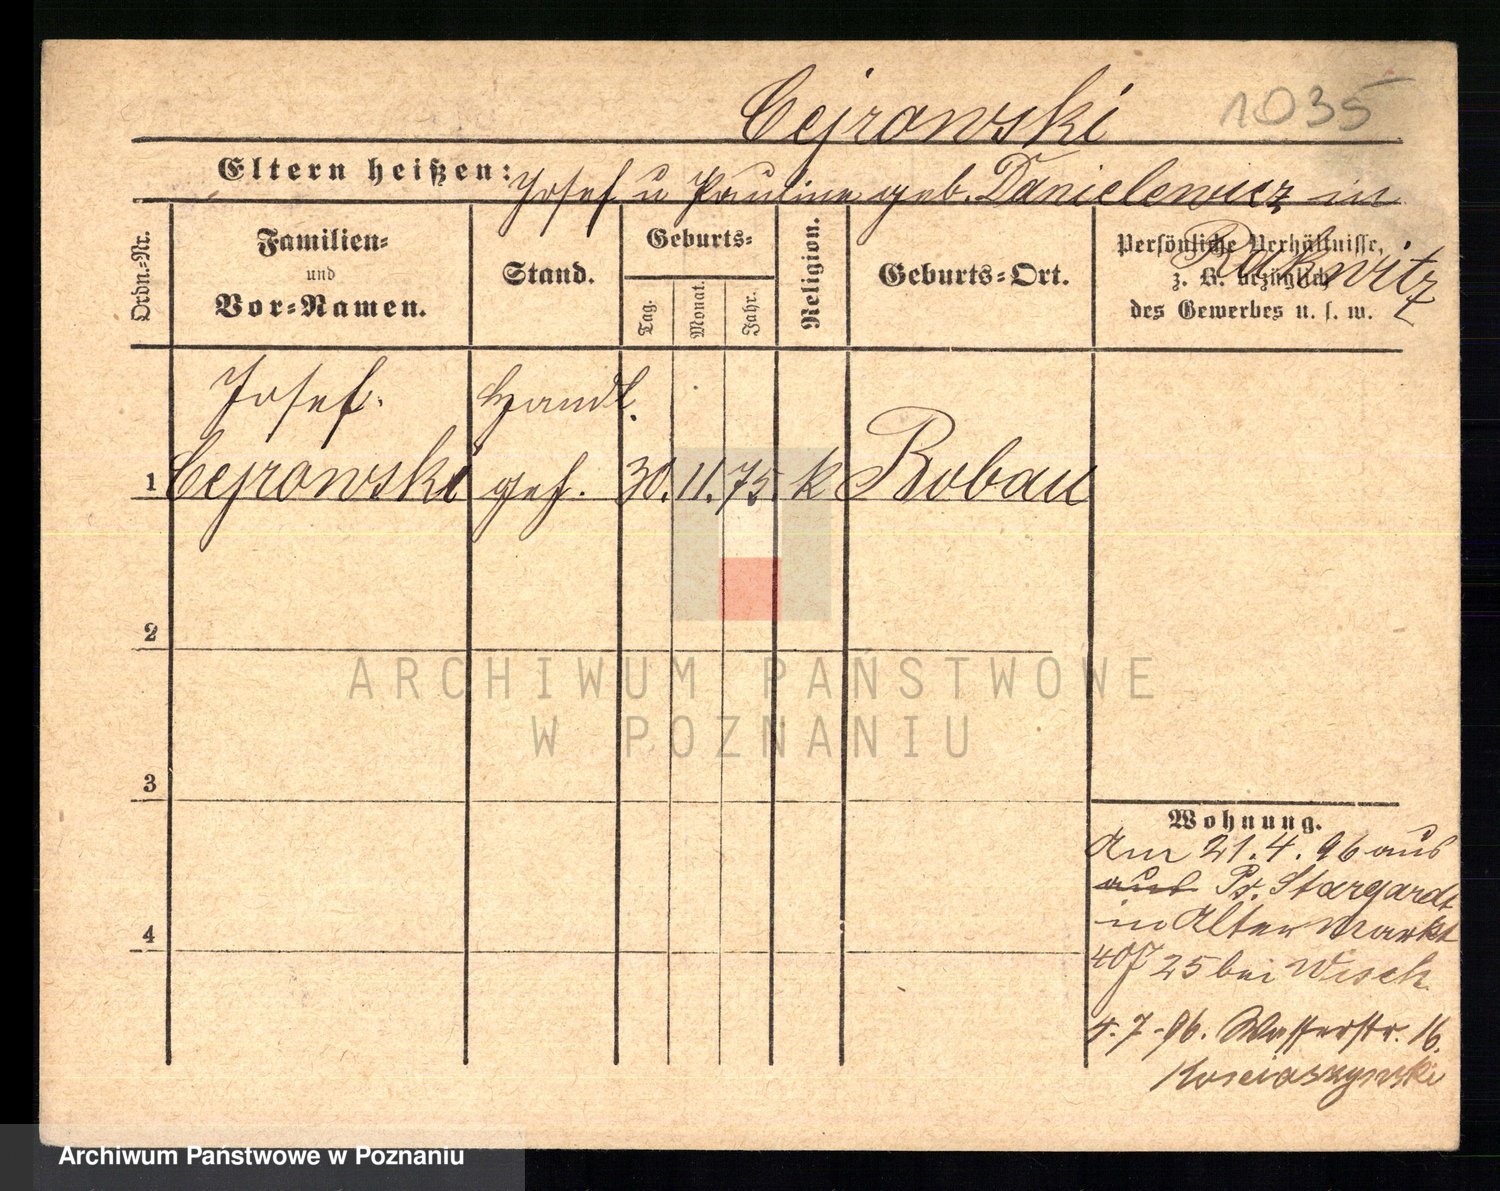 Cejrowski 1035
Eltern heißen: Josef u Pauline geb. Danielewicz in
Rakwitz
Ordn.-Nr.
Familien-
und
Vor-Namen.
Stand.
Geburts-
Tag.
Monat.
Jahr.
Religion.
Geburts-Ort.
Persönliche Verhältnisse,
z. B. bezüglich
des Gewerbes u. s. w.
Josef Handl.
1 Cejrowski geh. 30. 11. 75. k Bobau
2
3
4
Wohnung.
Am 21. 4. 96 aus
aus Pr. Stargardt
in Alter Markt
25 bei Wisch
4. 7. 96. Wasserstr. 16.
ARCHIWUM PAŃSTWOWE
W POZNANIU
Archiwum Państwowe w Poznaniu